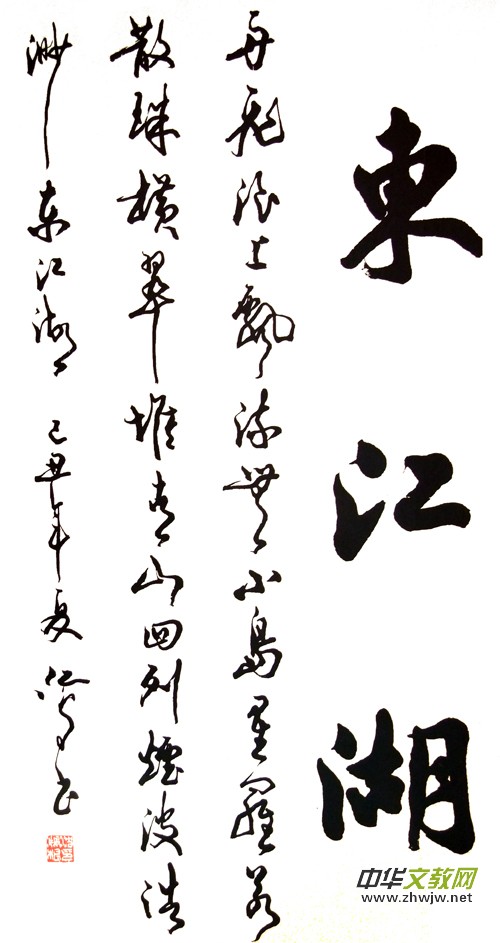 東江湖
舟飛浪上飄無小島星羅若
散珠橫翠堆青山四列煙波浩
渺东江湖 己丑年夏 书
中华文教网
www.zhwjw.net